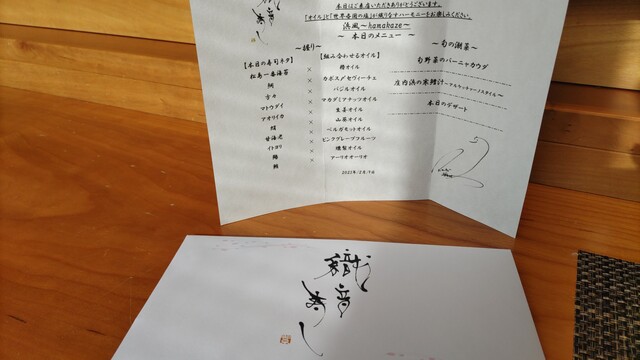 本日はご来店いただきありがとうございます。
「オイル」と「世界各国の塩」が織りなすハーモニーをお楽しみください。
浜風～hamakaze～
～ 本日のメニュー ～
～握り～
【本日の寿司ネタ】 【組み合わせるオイル】
松島一番海苔 ×
× カボス〆セヴィーチェ
× バジルオイル
マトウダイ × マカダミアナッツオイル
アオリイカ × 生姜オイル
× 山葵オイル
甘海老 × ベルガモットオイル
イトヨリ × ピンクグレープフルーツ
× 燻製オイル
× アーリオオーリオ
～旬の潮菜～
旬野菜のバーニャカウダ
庄内浜の寒鱈汁
本日のデザート
織音寿し